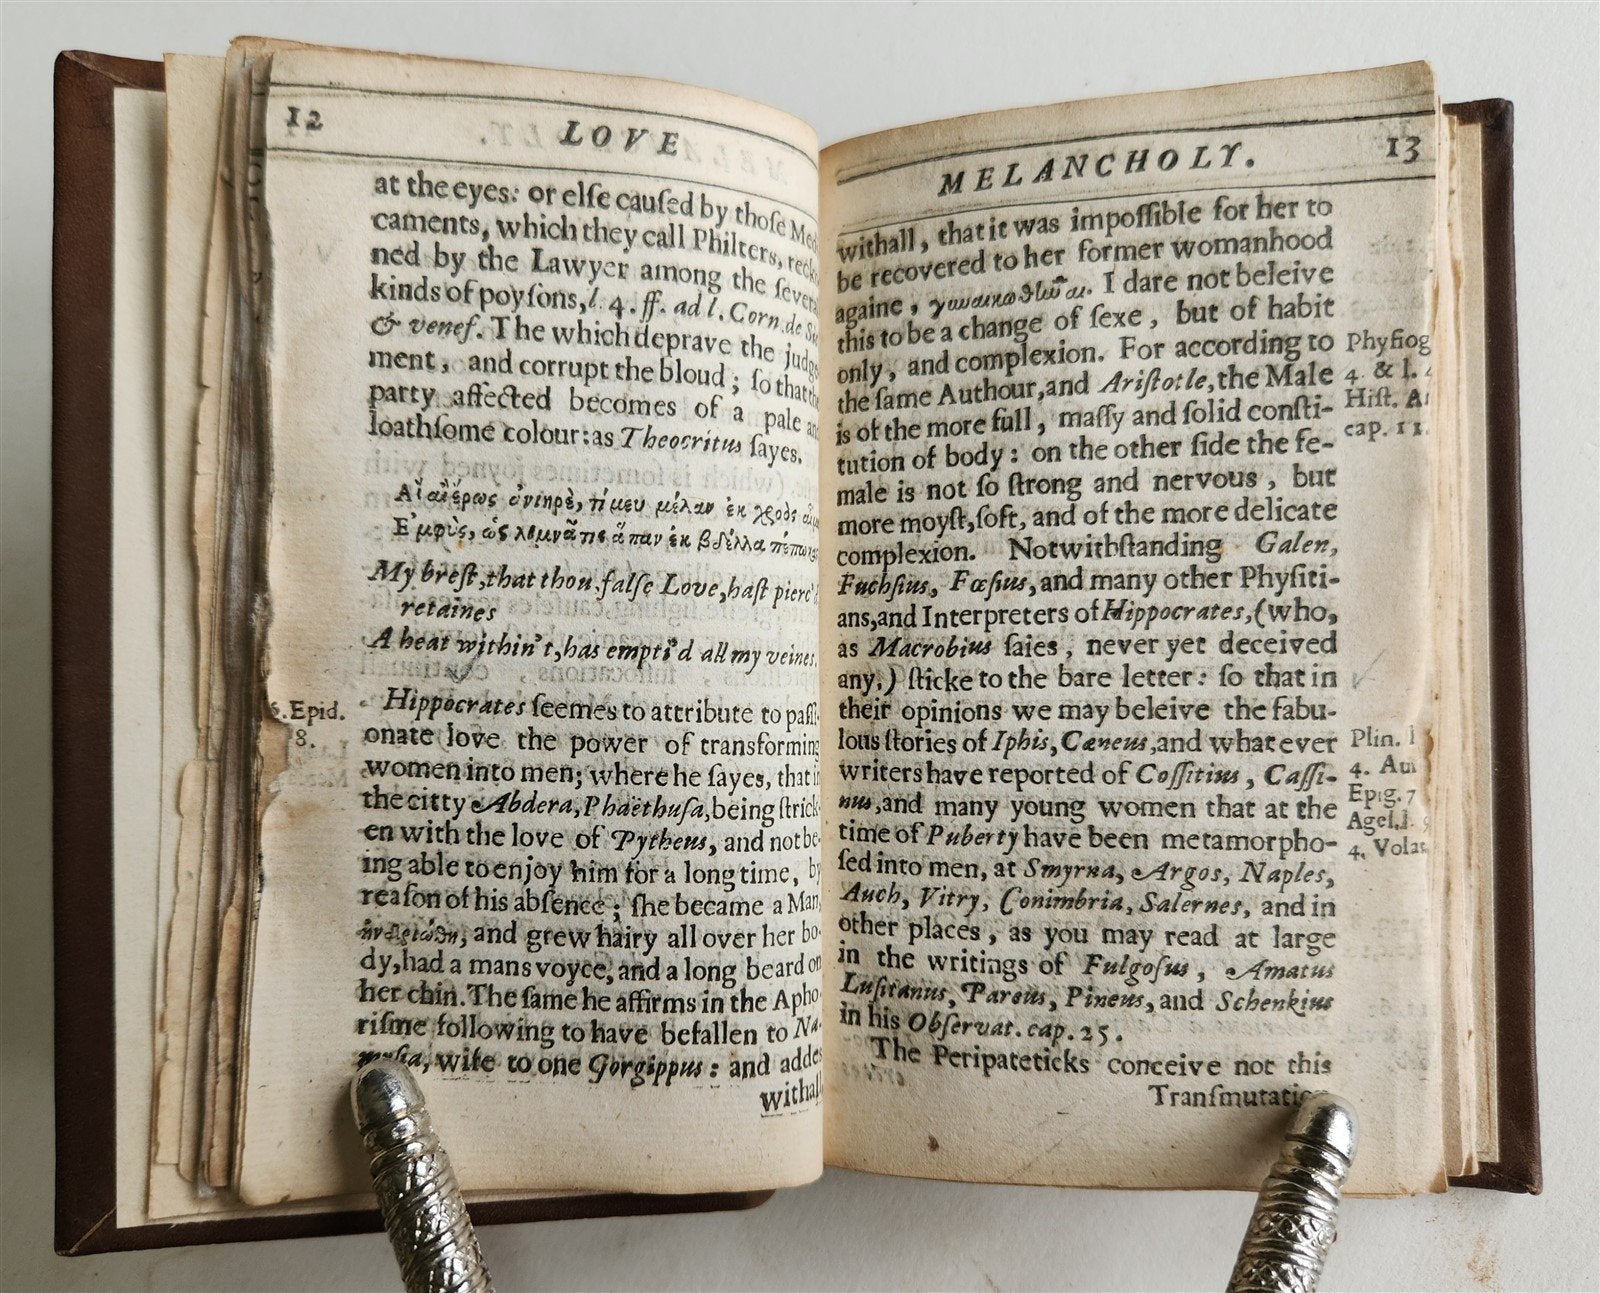 12 LOVE
at the eyes: or elſe cauſed by thoſe Med
caments, which they call Philters, reck
ned by the Lawyer among the ſevera
kinds of poyſons, l. 4. ff. ad l. Corn. de
& venef. The which deprave the judg
ment, and corrupt the bloud; ſo that th
party affected becomes of a pale an
loathſome colour: as Theocritus ſayes.
Αἲ αἲ ἔρως ἀνιηρὲ, τί μευ μέλαν ἐκ χροὸς
Ἐμφὺς, ὡς λιμνᾶτις ἅπαν ἐκ βδέλλα
My breſt, that thou falſe Love, haſt pierc'd
retaines
A heat within't, has empti'd all my veines.
6. Epid.
8.
Hippocrates ſeemes to attribute to paſſi-
onate love the power of transforming
women into men; where he ſayes, that in
the citty Abdera, Phaëthuſa, being ſtrick-
en with the love of Pytheus, and not be-
ing able to enjoy him for a long time, by
reaſon of his abſence; ſhe became a Man,
and grew hairy all over her bo-
dy, had a mans voyce, and a long beard on
her chin. The ſame he affirms in the Apho-
riſme following to have befallen to Na-
myſia, wife to one Gorgippus: and addes
withall
MELANCHOLY. 13
withall, that it was impoſſible for her to
be recovered to her former womanhood
againe, I dare not beleive
this to be a change of ſexe, but of habit
only, and complexion. For according to
the ſame Authour, and Ariſtotle, the Male
is of the more full, maſſy and ſolid conſti-
tution of body: on the other ſide the fe-
male is not ſo ſtrong and nervous, but
more moyſt, ſoft, and of the more delicate
complexion. Notwithſtanding Galen,
Fuchſius, Fœſius, and many other Phyſiti-
ans, and Interpreters of Hippocrates, (who,
as Macrobius ſaies, never yet deceived
any,) ſticke to the bare letter: ſo that in
their opinions we may beleive the fabu-
lous ſtories of Iphis, Cæneus, and whatever
writers have reported of Coſſitius, Caſſi-
nus, and many young women that at the
time of Puberty have been metamorpho-
ſed into men, at Smyrna, Argos, Naples,
Auch, Vitry, Conimbria, Salernes, and in
other places, as you may read at large
in the writings of Fulgoſus, Amatus
Luſitanus, Pareus, Pineus, and Schenkius
in his Obſervat. cap. 25.
The Peripateticks conceive not this
Tranſmutation
Phyſiog
4. & l.
Hiſt. A
cap. 11.
Plin. l
4. Au
Epig. 7
Ageſ. l. 9
4. Vola